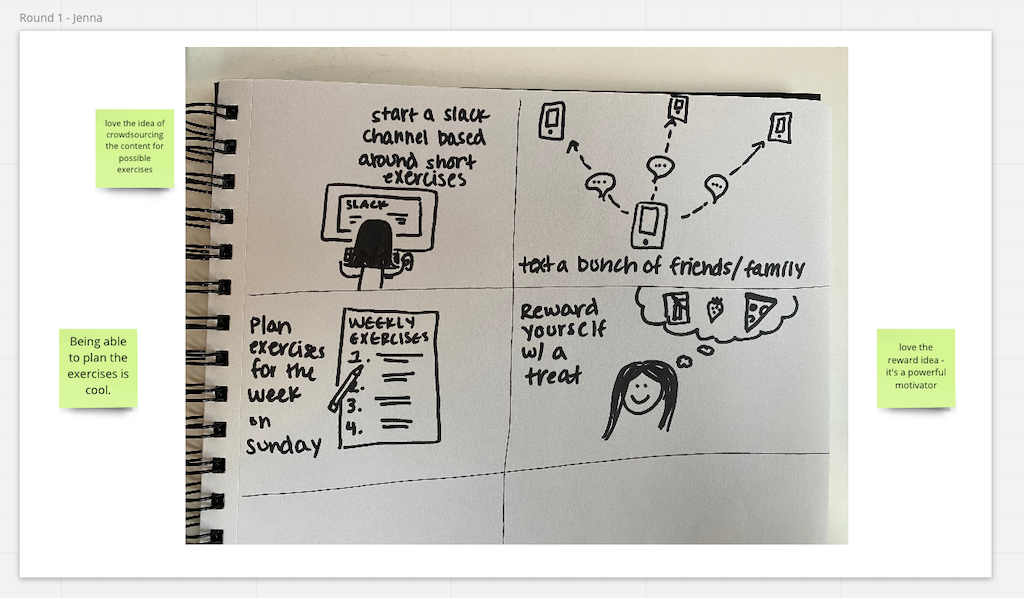 Round 1 - Jenna
love the idea of
crowdsourcing
the content for
possible
exercises
start a slack
channel based
around short
exercises
SLACK
text a bunch of friends/family
Being able
to plan the
exercises is
cool.
Plan
exercises
for the
week
on
sunday
WEEKLY
EXERCISES
1.
2.
3.
4.
Reward
yourself
w/ a
treat
love the
reward idea -
it's a powerful
motivator